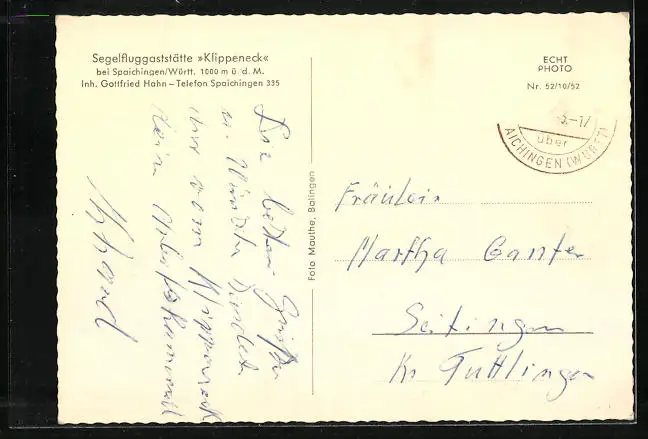 Segelfluggaststätte »Klippeneck«
bei Spaichingen/Württ. 1000 m ü. d. M.
Inh. Gottfried Hahn – Telefon Spaichingen 335
ECHT
PHOTO
Nr. 52/10/52
über
AICHINGEN (WÜRTT)
Foto Mauthe, Balingen
Die besten Grüße
u. Wünsche sendet
vom Klippeneck
Fräulein
Martha Ganter
Seitingen
Kr Tuttlingen